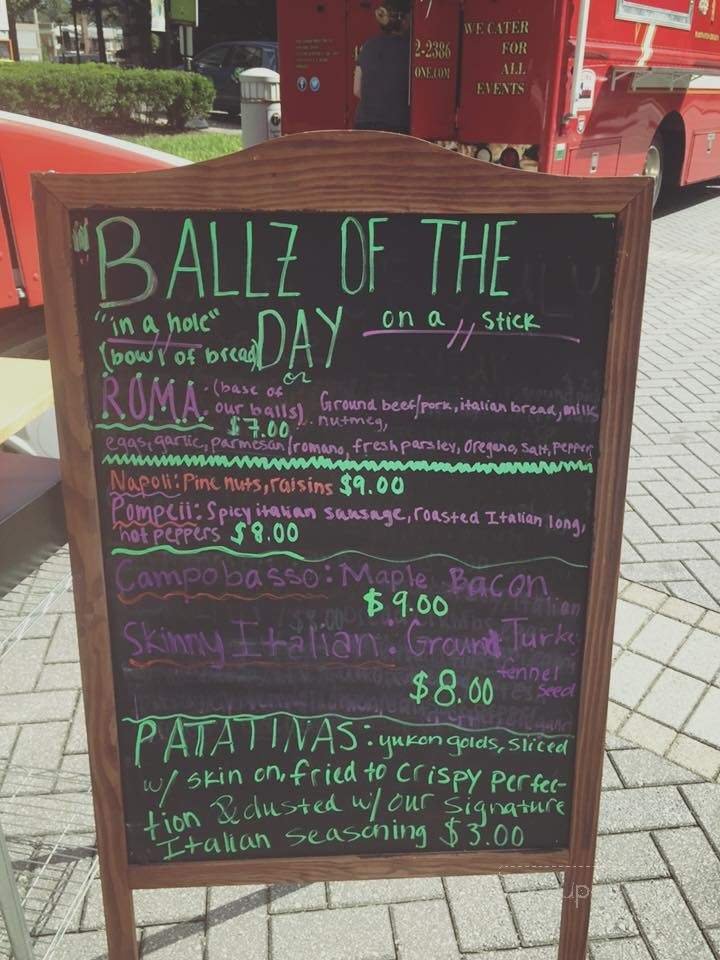 WE CATER
FOR
ALL
EVENTS
2-2386
ONE.COM
BALLZ OF THE
"in a hole" DAY on a // stick
(bowl of bread)
or
ROMA - (base of our balls) Ground beef/pork, italian bread, milk
$7.00 nutmeg,
eggs, garlic, parmesan/romano, fresh parsley, oregano, salt, pepper
Napoli: Pine nuts, raisins $9.00
Pompeii: Spicy italian sausage, roasted Italian long,
hot peppers $8.00
Campobasso: Maple Bacon
$9.00
Skinny Italian: Ground Turkey
fennel
$8.00 seed
PATATINAS: yukon golds, sliced
w/ skin on, fried to crispy perfec-
tion & dusted w/ our signature
Italian seasoning $3.00
up